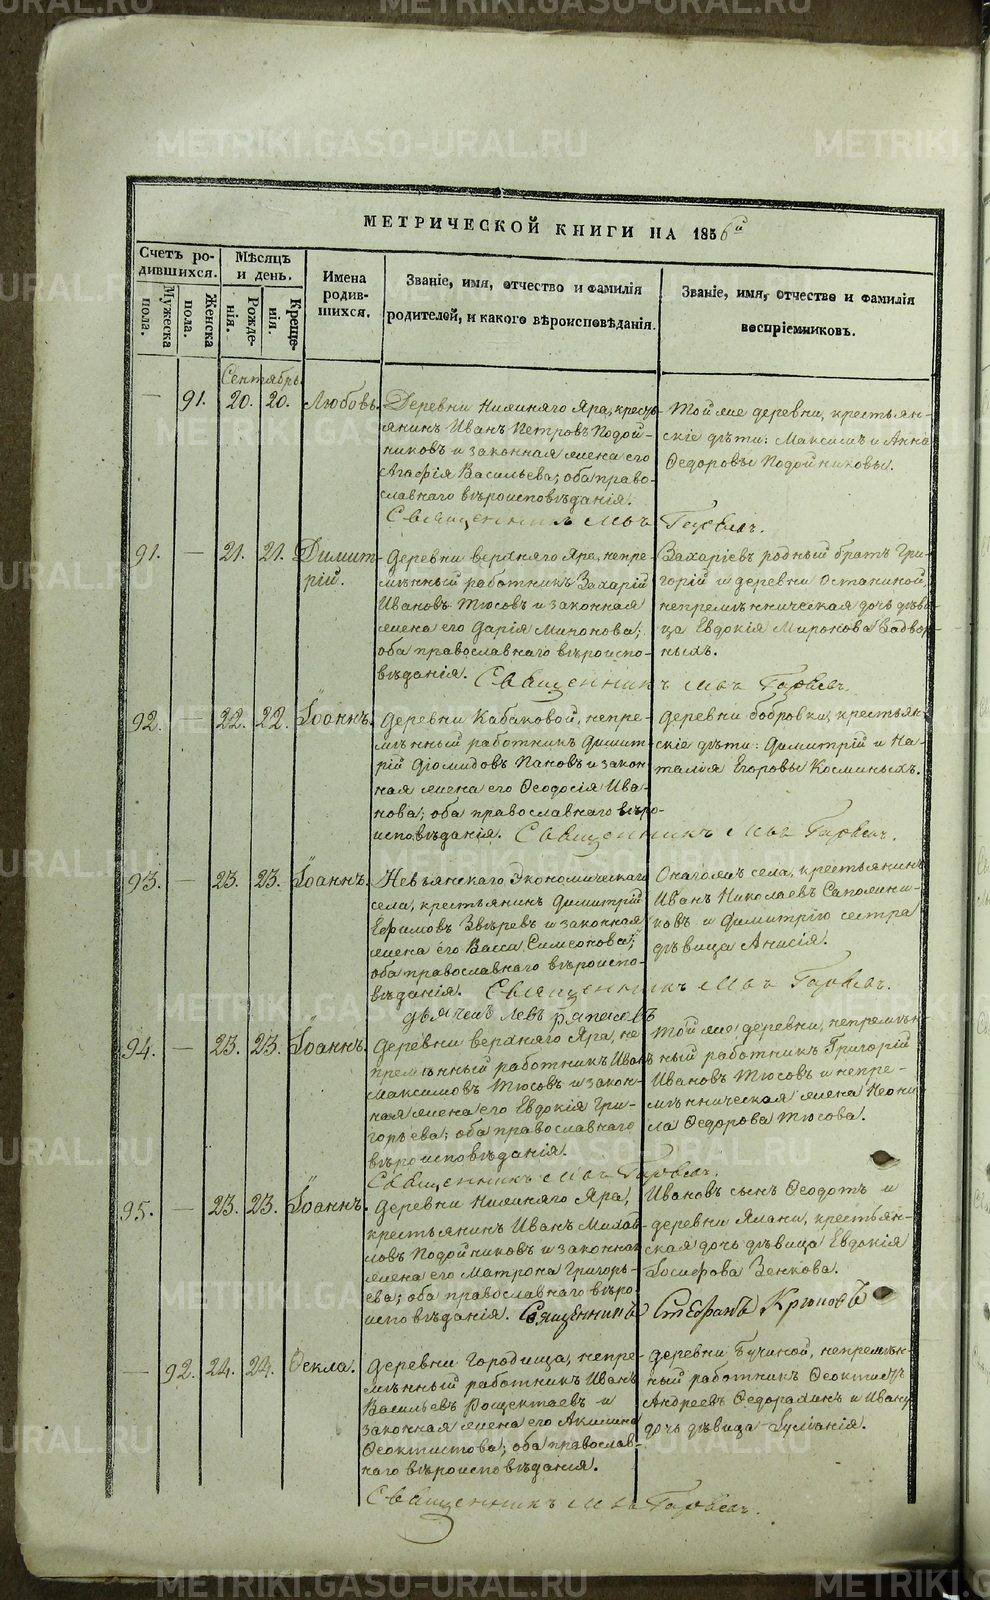 МЕТРИЧЕСКОЙ КНИГИ НА 1856й
Счетъ ро-
дившихся.
Мужеска
пола.
Женска
пола.
Мѣсяцъ
и день.
Рожде-
нія.
Креще-
нія.
Имена
родив-
шихся.
Званіе, имя, отчество и фамилія
родителей, и какого вѣроисповѣданія.
Званіе, имя, отчество и фамилія
воспріемниковъ.
Сентябрь
— 91. 20. 20. Любовь.
Деревни Нижняго Яра, кресть-
янинъ Иванъ Петровъ Подой-
никовъ и законная жена его
Агафія Васильева; оба право-
славнаго вѣроисповѣданія.
Тойже деревни, крестьян-
скіе дѣти: Максимъ и Анна
Ѳедоровы Подойниковы.
Священникъ
91. — 21. 21. Димит-
рій.
Деревни верхняго Яра, непре-
мѣнный работникъ Захарій
Ивановъ Тюсовъ и законная
жена его Дарія Миронова;
оба православнаго вѣроиспо-
вѣданія.
Захаріевъ родный братъ Гри-
горій и деревни Останиной,
непремѣнническая дочь дѣви-
ца Евдокія Миронова Задвор-
ныхъ.
Священникъ
92. — 22. 22. Іоаннъ.
Деревни Кабаковой, непре-
мѣнный работникъ Димит-
рій Діомидовъ Пановъ и закон-
ная жена его Ѳеодосія Ива-
нова; оба православнаго вѣро-
исповѣданія.
Деревни бобровки, крестьян-
скіе дѣти: Димитрій и На-
талія Егоровы Косминыхъ.
Священникъ
93. — 23. 23. Іоаннъ.
Невьянскаго Экономическаго
села, крестьянинъ Димитрій
Ефимовъ Звѣревъ и законная
жена его Васса Симеонова;
оба православнаго вѣроиспо-
вѣданія.
Онагожъ села, крестьянинъ
Иванъ Николаевъ Сапожни-
ковъ и Димитрію сестра
дѣвица Анисія.
Священникъ
Дьячекъ Левъ
94. — 23. 23. Іоаннъ.
Деревни верхняго Яра, не-
премѣнный работникъ Иванъ
Максимовъ Тюсовъ и закон-
ная жена его Евдокія Гри-
горьева; оба православнаго
вѣроисповѣданія.
Тойже деревни, непремѣн-
ный работникъ Григорій
Ивановъ Тюсовъ и непре-
мѣнническая жена Неони-
ла Ѳедорова Тюсова.
Священникъ
95. — 23. 23. Іоаннъ.
Деревни Нижняго Яра,
крестьянинъ Иванъ Михай-
ловъ Подойниковъ и законная
жена его Матрона Григорь-
ева; оба православнаго вѣро-
исповѣданія.
Ивановъ сынъ Ѳеодотъ и
деревни Ялани, крестьян-
ская дочь дѣвица Евдокія
Іосифова Зенкова.
Священникъ Стефанъ Крюковъ
— 92. 24. 24. Ѳекла.
Деревни Городища, непре-
мѣнный работникъ Иванъ
Васильевъ Рощектаевъ и
законная жена его Акилина
Ѳеоктистова; оба православ-
наго вѣроисповѣданія.
деревни Бучиной, непремѣн-
ный работникъ Ѳеоктистъ
Андреевъ Ѳедорахинъ и Ивану
дочь дѣвица Іуліанія.
Священникъ
METRIKI.GASO-URAL.RU